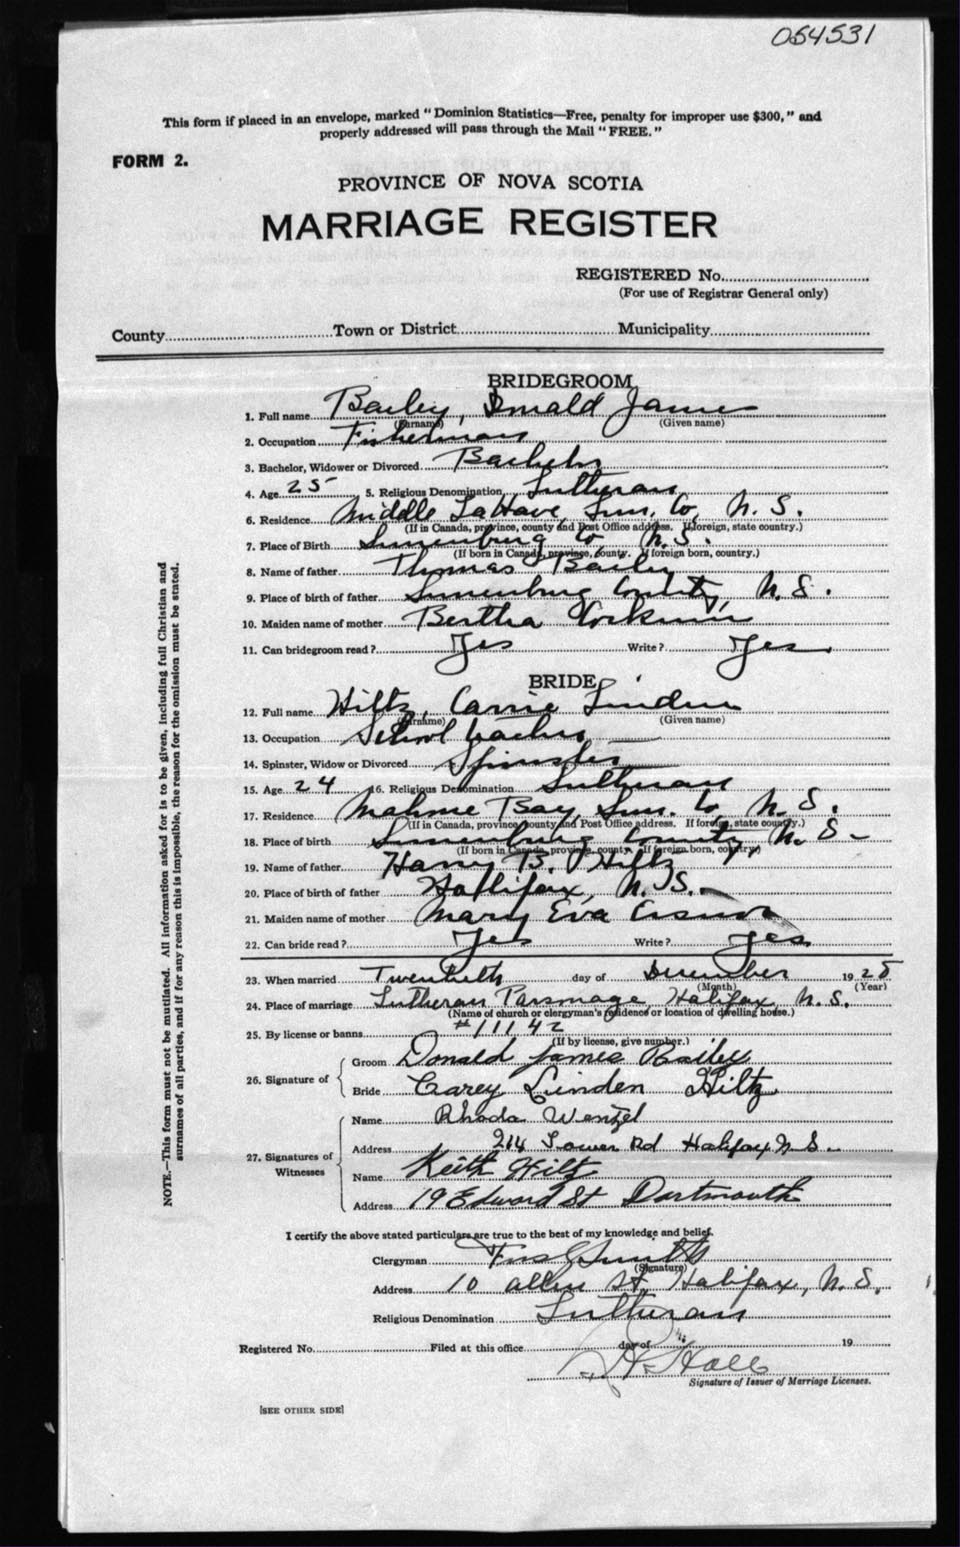 054531
This form if placed in an envelope, marked "Dominion Statistics—Free, penalty for improper use $300," and
properly addressed will pass through the Mail "FREE."
FORM 2.
PROVINCE OF NOVA SCOTIA
MARRIAGE REGISTER
REGISTERED No.
(For use of Registrar General only)
County Town or District Municipality
BRIDEGROOM
1. Full name Bailey, Donald James
(Surname) (Given name)
2. Occupation Fisherman
3. Bachelor, Widower or Divorced Bachelor
4. Age 25 5. Religious Denomination Lutheran
6. Residence Middle LaHave, Lun. Co, N. S.
(If in Canada, province, county and Post Office address. If foreign, state country.)
7. Place of Birth Lunenburg Co N. S.
(If born in Canada, province, county. If foreign born, country.)
8. Name of father Thomas Bailey
9. Place of birth of father Lunenburg County, N. S.
10. Maiden name of mother Bertha
11. Can bridegroom read? Yes Write? Yes
BRIDE
12. Full name Hiltz, Carrie Linden
(Surname) (Given name)
13. Occupation School teacher
14. Spinster, Widow or Divorced Spinster
15. Age 24 16. Religious Denomination Lutheran
17. Residence Mahone Bay, Lun. Co, N. S.
(If in Canada, province, county and Post Office address. If foreign, state country.)
18. Place of birth Lunenburg County, N. S
(If born in Canada, province, county. If foreign born, country)
19. Name of father Harry B. Hiltz
20. Place of birth of father Hallifax, N. S.
21. Maiden name of mother Mary Eva
22. Can bride read? Yes Write? Yes
23. When married Twentieth day of December 1928
(Month) (Year)
24. Place of marriage Lutheran Parsonage, Halifax, N. S.
(Name of church or clergyman's residence or location of dwelling house.)
25. By license or banns #11142
(If by license, give number.)
26. Signature of Groom Donald James Bailey
Bride Carey Linden Hiltz
27. Signatures of Witnesses Name Rhoda Wentzel
Address 214 Tower Rd Halifax N S.
Name Keith Hiltz
Address 19 Edward St Dartmouth
I certify the above stated particulars are true to the best of my knowledge and belief.
Clergyman Smith
(Signature)
Address 10 Allen St, Halifax, N. S.
Religious Denomination Lutheran
Registered No. Filed at this office day of 19
Hall
Signature of Issuer of Marriage Licenses.
[SEE OTHER SIDE]
NOTE.—This form must not be mutilated. All information asked for is to be given, including full Christian and
surnames of all parties, and if for any reason this is impossible, the reason for the omission must be stated.